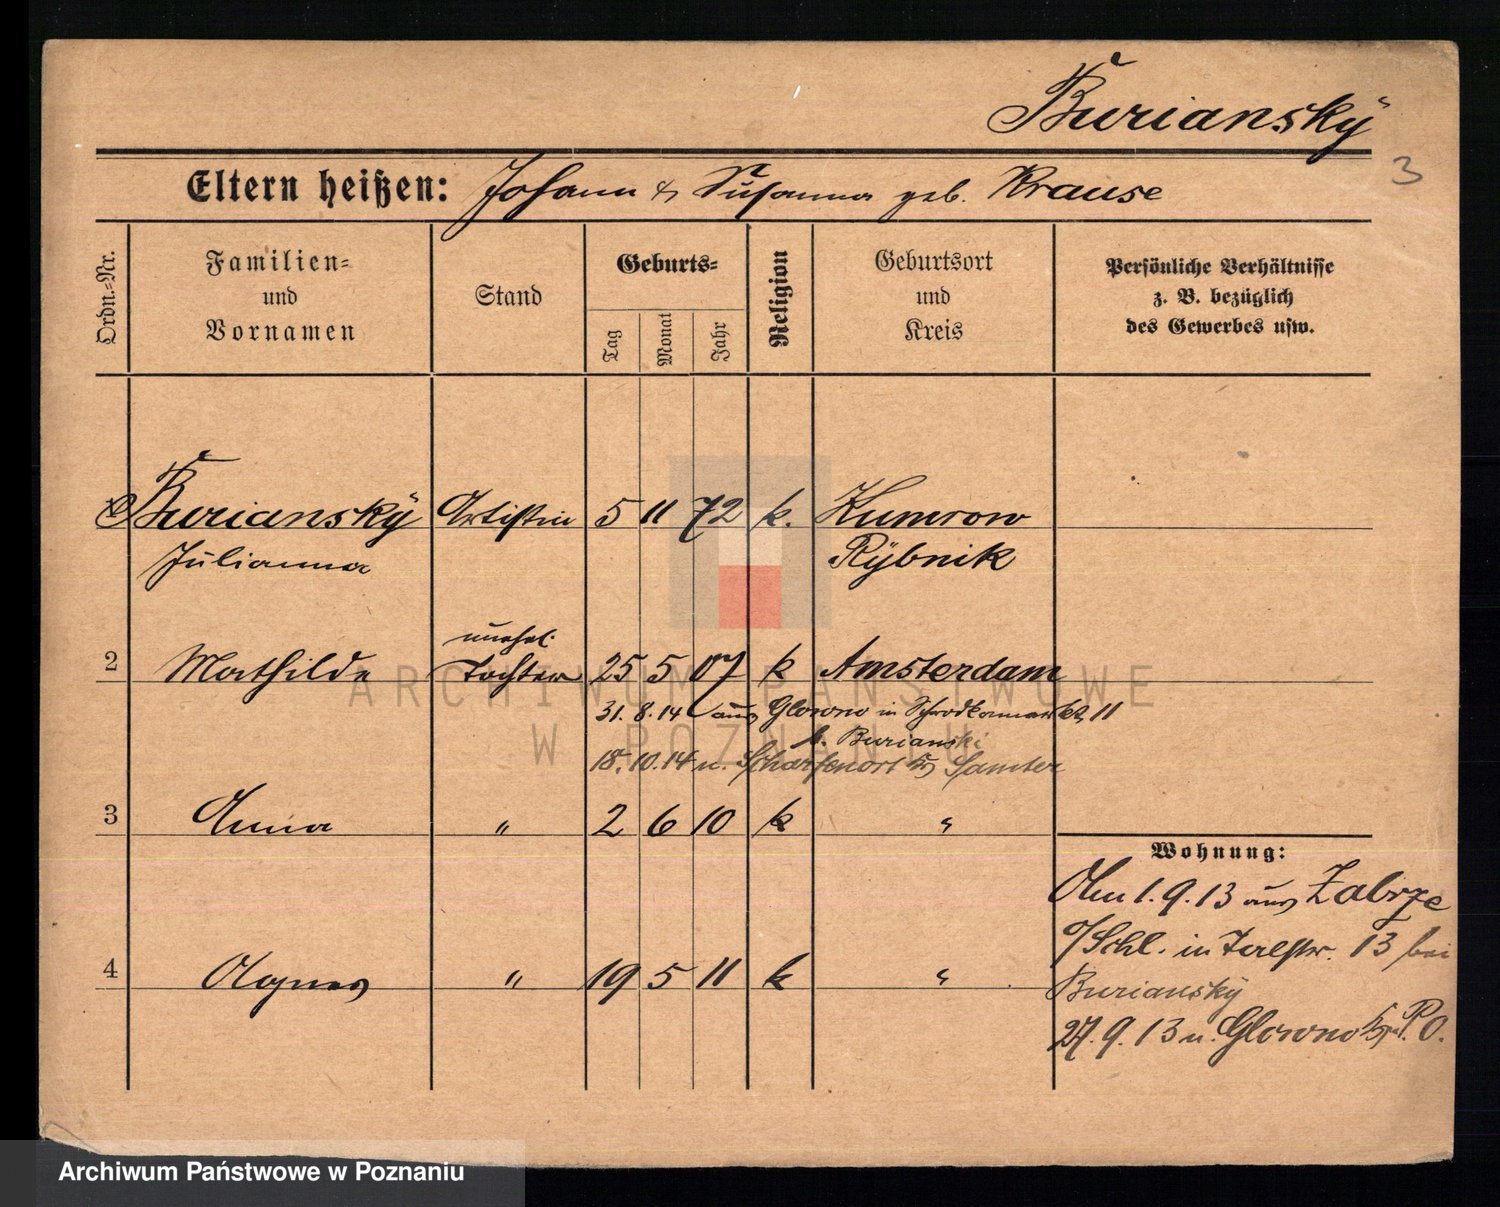 Burianský
3
Eltern heißen: Johann & Susanna geb. Krause
Ordn.=Nr.
Familien=
und
Vornamen
Stand
Geburts=
Tag
Monat
Jahr
Religion
Geburtsort
und
Kreis
Persönliche Verhältnisse
z. B. bezüglich
des Gewerbes usw.
1 Burianský Artistin 5 11 72 k.
Julianna Rybnik
2 Mathilde unehel. Tochter 25 5 07 k Amsterdam
31. 8. 14 aus Glowno in 11
b. Burianski
18. 10. 14 n. Scharfenort Kr. Samter
3 Anna " 2 6 10 k "
4 Agnes " 19 5 11 k "
Wohnung:
Am 1. 9. 13 aus Zabrze
O/Schl. in 13 bei
Burianský
27. 9. 13 n. Glowno P. O.
ARCHIWUM PAŃSTWOWE
W POZNANIU
Archiwum Państwowe w Poznaniu